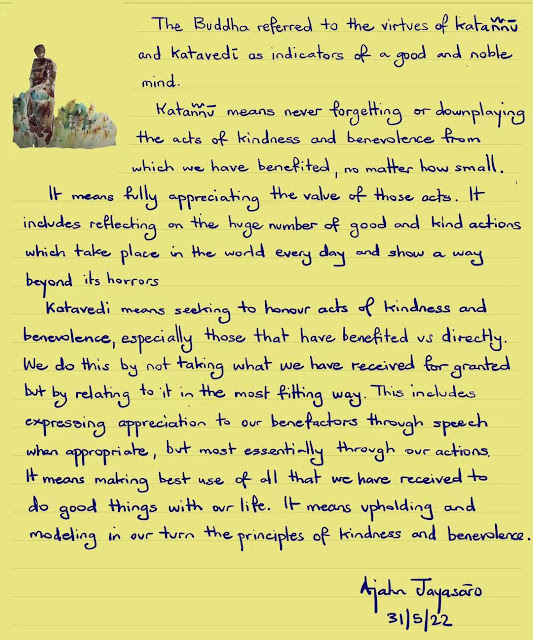 The Buddha referred to the virtues of kataññū
and katavedī as indicators of a good and noble
mind.
Kataññū means never forgetting or downplaying
the acts of kindness and benevolence from
which we have benefited, no matter how small.
It means fully appreciating the value of those acts. It
includes reflecting on the huge number of good and kind actions
which take place in the world every day and show a way
beyond its horrors
Katavedi means seeking to honour acts of kindness and
benevolence, especially those that have benefited us directly.
We do this by not taking what we have received for granted
but by relating to it in the most fitting way. This includes
expressing appreciation to our benefactors through speech
when appropriate, but most essentially through our actions.
It means making best use of all that we have received to
do good things with our life. It means upholding and
modeling in our turn the principles of kindness and benevolence.
Ajahn Jayasāro
31/5/22